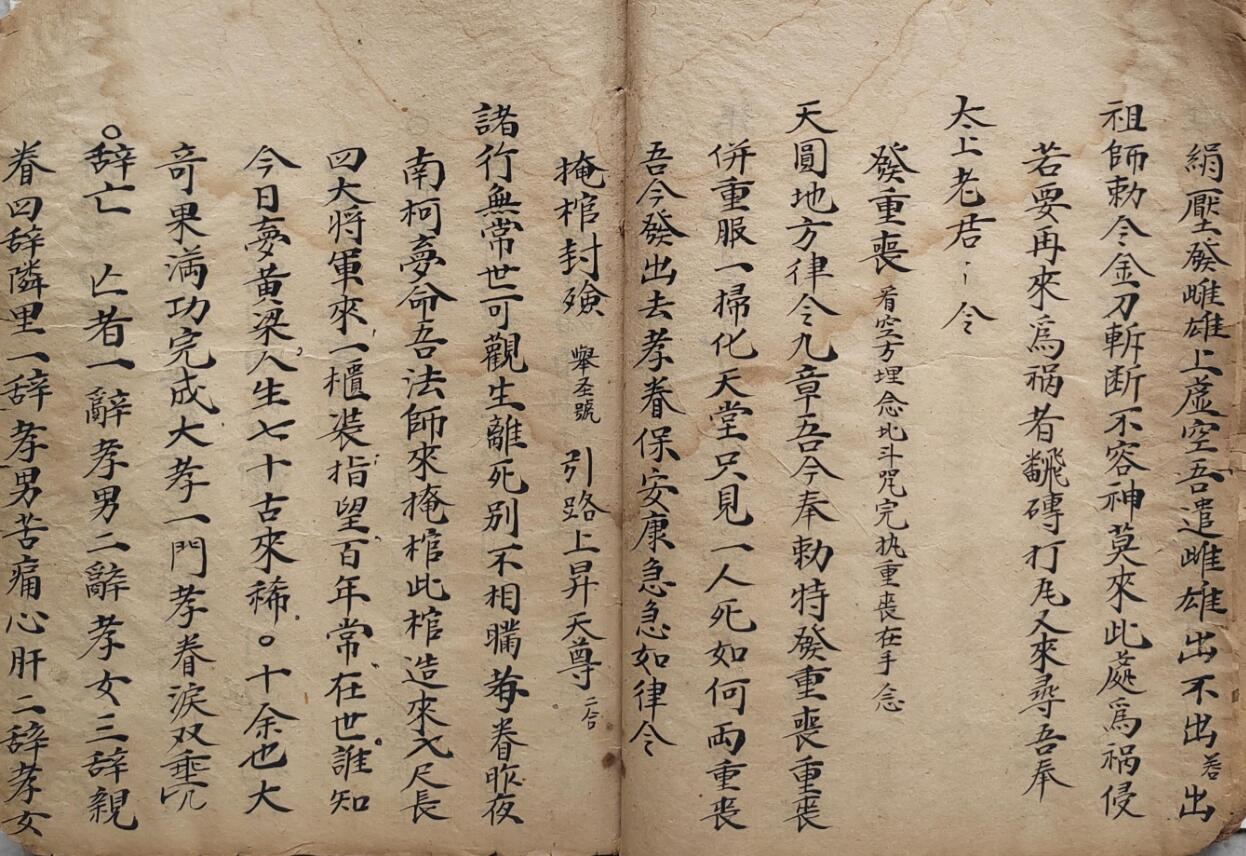 絹壓發雌雄上虛空吾遣雌雄出不出若出
祖師勅令金刀斬断不容神莫來此處為禍侵
若要再來為祸者飜磚打瓦又來尋吾奉
太上老君〻令
發重喪 看空方埋念北斗咒完执重喪在手念
天圓地方律令九章吾今奉勅特發重喪重喪
併重服一掃化天堂只見一人死如何両重喪
吾今發出去孝眷保安康急急如律令
掩棺封殮 舉圣號 引路上昇天尊 二合
諸行無常世可觀生離死别不相瞞孝眷昨夜
南柯夢命吾法師來掩棺此棺造來七尺長
四大将軍來一櫃装指望百年常在世誰知
今日夢黄梁人生七十古來稀○十余也大
竒果滿功完成大孝一門孝眷淚双垂
○辞亡 亡者一辭孝男二辭孝女三辞親
眷四辞隣里一辞孝男苦痛心肝二辞孝女